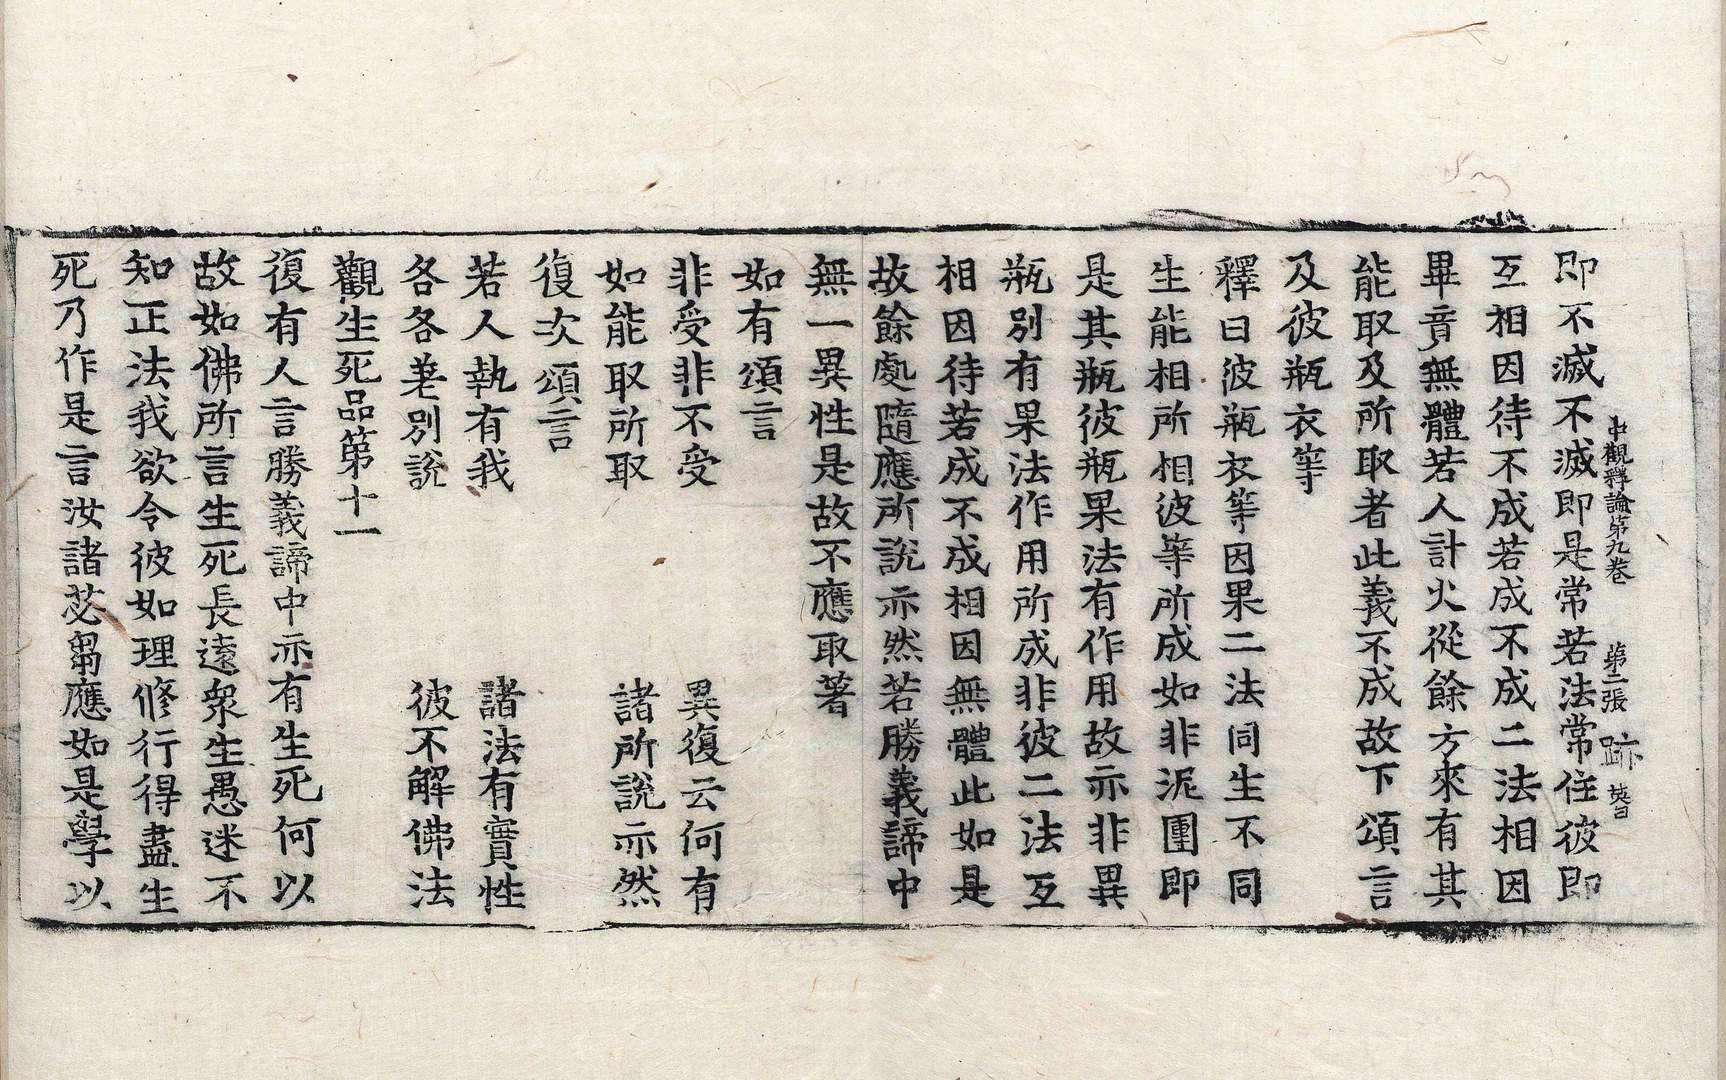 中觀釋論第九卷　第二張　跡　英
即不滅不滅即是常若法常住彼即
互相因待不成若成不成二法相因
畢竟無體若人計火從餘方來有其
能取及所取者此義不成故下頌言
及彼瓶衣等
釋曰彼瓶衣等因果二法同生不同
生能相所相彼等所成如非泥團即
是其瓶彼瓶果法有作用故亦非異
瓶別有果法作用所成非彼二法互
相因待若成不成相因無體此如是
故餘處隨應所說亦然若勝義諦中
無一異性是故不應取著
如有頌言
非受非不受　異復云何有
如能取所取　諸所說亦然
復次頌言
若人執有我　諸法有實性
各各差別說　彼不解佛法
觀生死品第十一
復有人言勝義諦中亦有生死何以
故如佛所言生死長遠眾生愚迷不
知正法我欲令彼如理修行得盡生
死乃作是言汝諸苾芻應如是學以